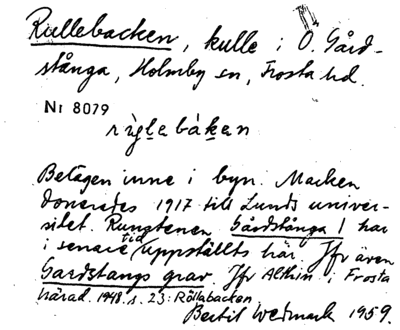 Rullebacken, kulle i Ö. Gård-
stånga, Holmby sn, Frosta hd.
Nr 8079
rùgləbàkən
Belägen inne i byn. Marken
donerades 1917 till Lunds univer-
sitet. Runstenen Gårdstånga 1 har
i senare tid uppställts här. Jfr även
Gardstangs grav. Jfr Althin, Frosta
härad. 1948. s. 23: Röllabacken
Bertil Wedmark 1959.